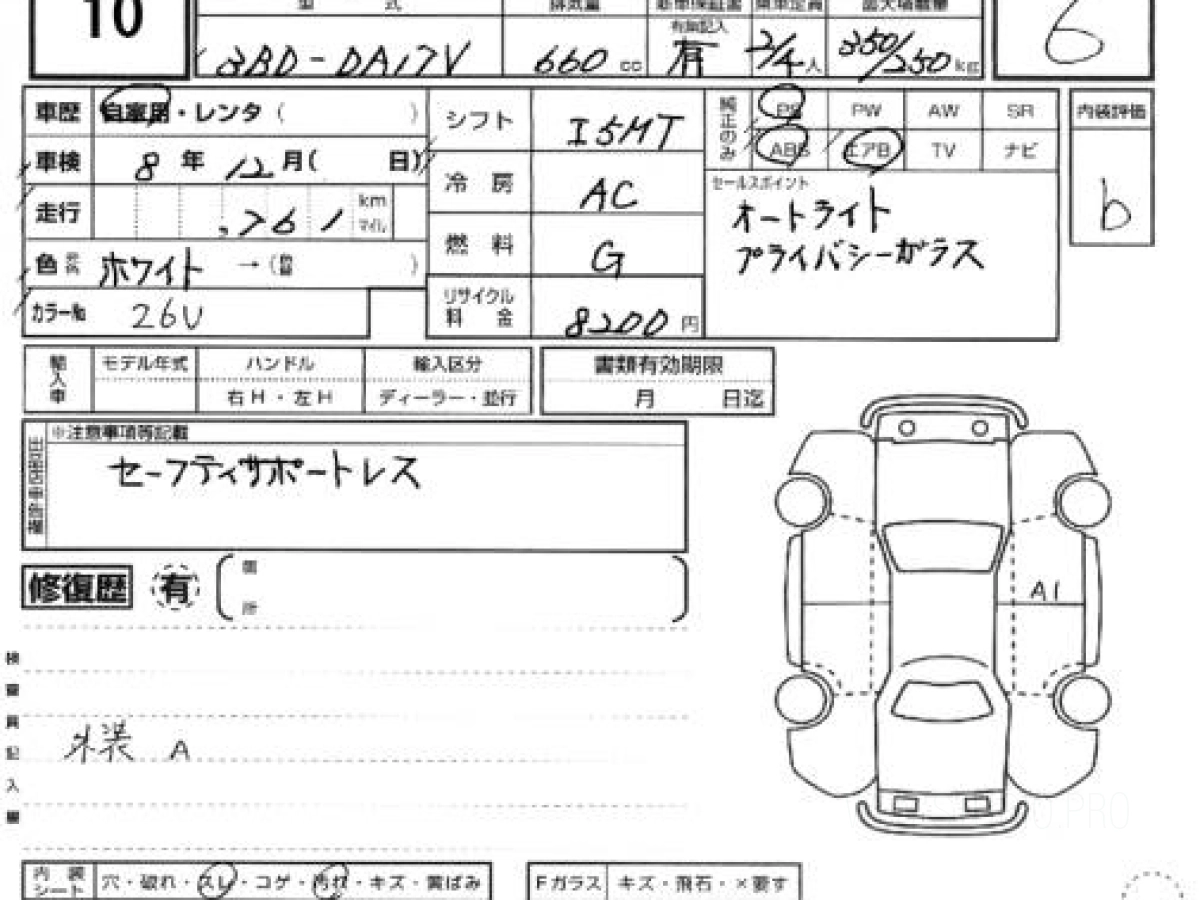 10
型 式 排気量 新車保証書 乗車定員 最大積載量
有無記入
3BD-DA17V 660 cc 有 2/4人 350/250kg
6
車歴 自家用・レンタ( )
シフト I5MT
純正のみ PS PW AW SR
ABS エアB TV ナビ
内装評価
b
車検 8年12月( 日)
冷房 AC
セールスポイント
オートライト
プライバシーガラス
走行 ,761 km マイル
燃料 G
色 ホワイト →( )
カラー№ 26U
リサイクル料金 8200円
輸入車 モデル年式 ハンドル 輸入区分
右H・左H ディーラー・並行
書類有効期限
月 日迄
※注意事項等記載
セーフティサポートレス
修復歴 有 箇所
A1
検査員記入欄
外装 A
内装シート 穴・破れ・スレ・コゲ・汚れ・キズ・黄ばみ
Fガラス キズ・飛石・×要す
9.PRO